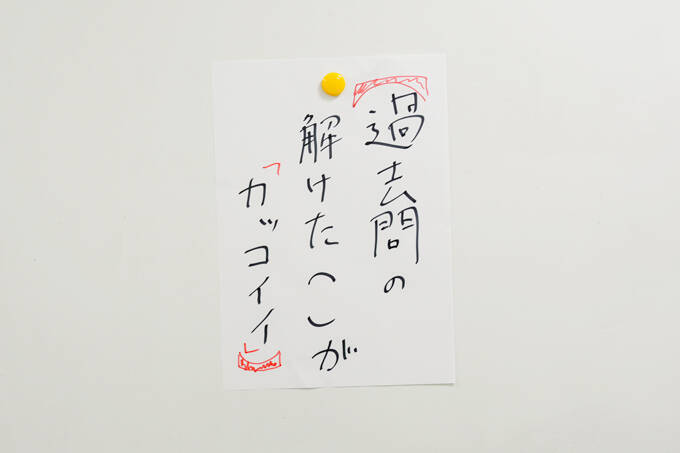 過去問の
解けた( )が
「カッコイイ」